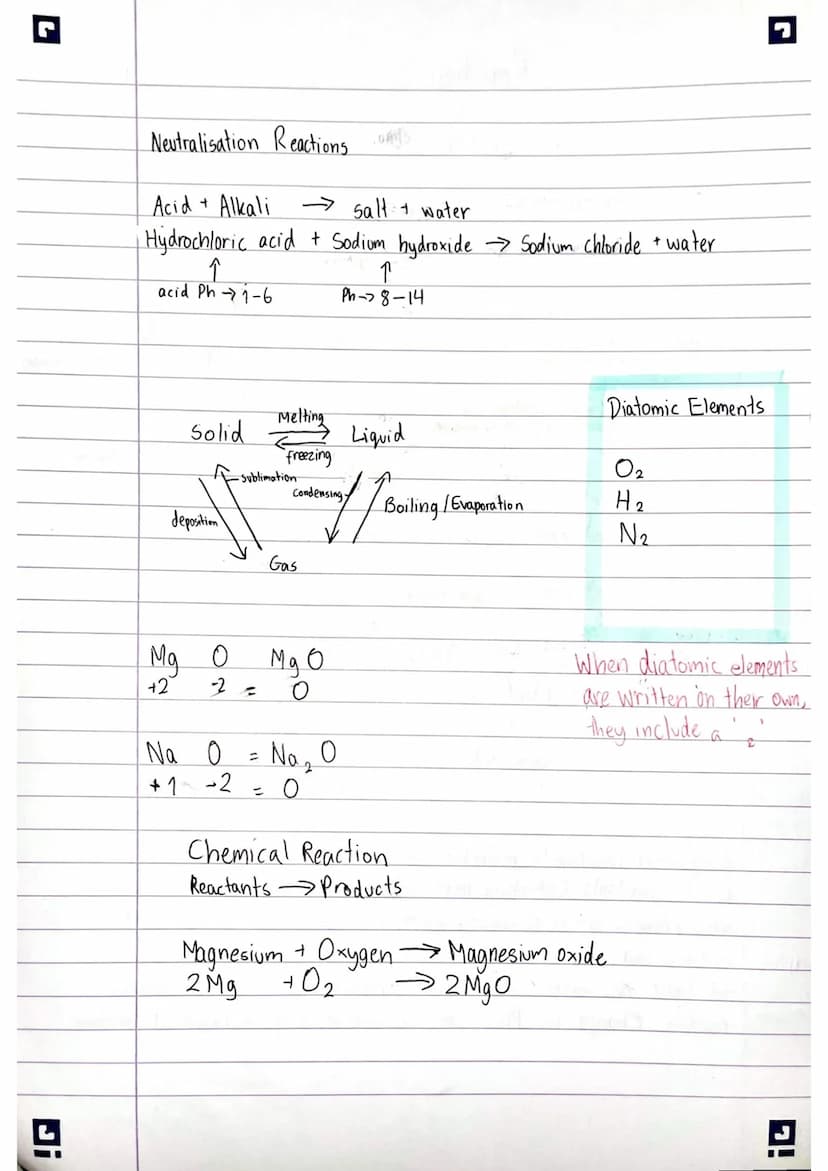 Neutralisation Reactions
Acid + Alkali → salt + water
Hydrochloric acid + Sodium hydroxide → Sodium chloride + water
↑ ↑
acid Ph → 1-6 Ph → 8-14
Diatomic Elements
O₂
H₂
N₂
Melting
Solid ⇌ Liquid
freezing
sublimation
Condensing
Boiling / Evaporation
deposition
Gas
When diatomic elements
are written on their own,
they include a '₂'
Mg O MgO
+2 -2 = 0
Na O = Na₂O
+1 -2 = 0
Chemical Reaction
Reactants → Products
Magnesium + Oxygen → Magnesium oxide
2Mg + O₂ → 2MgO